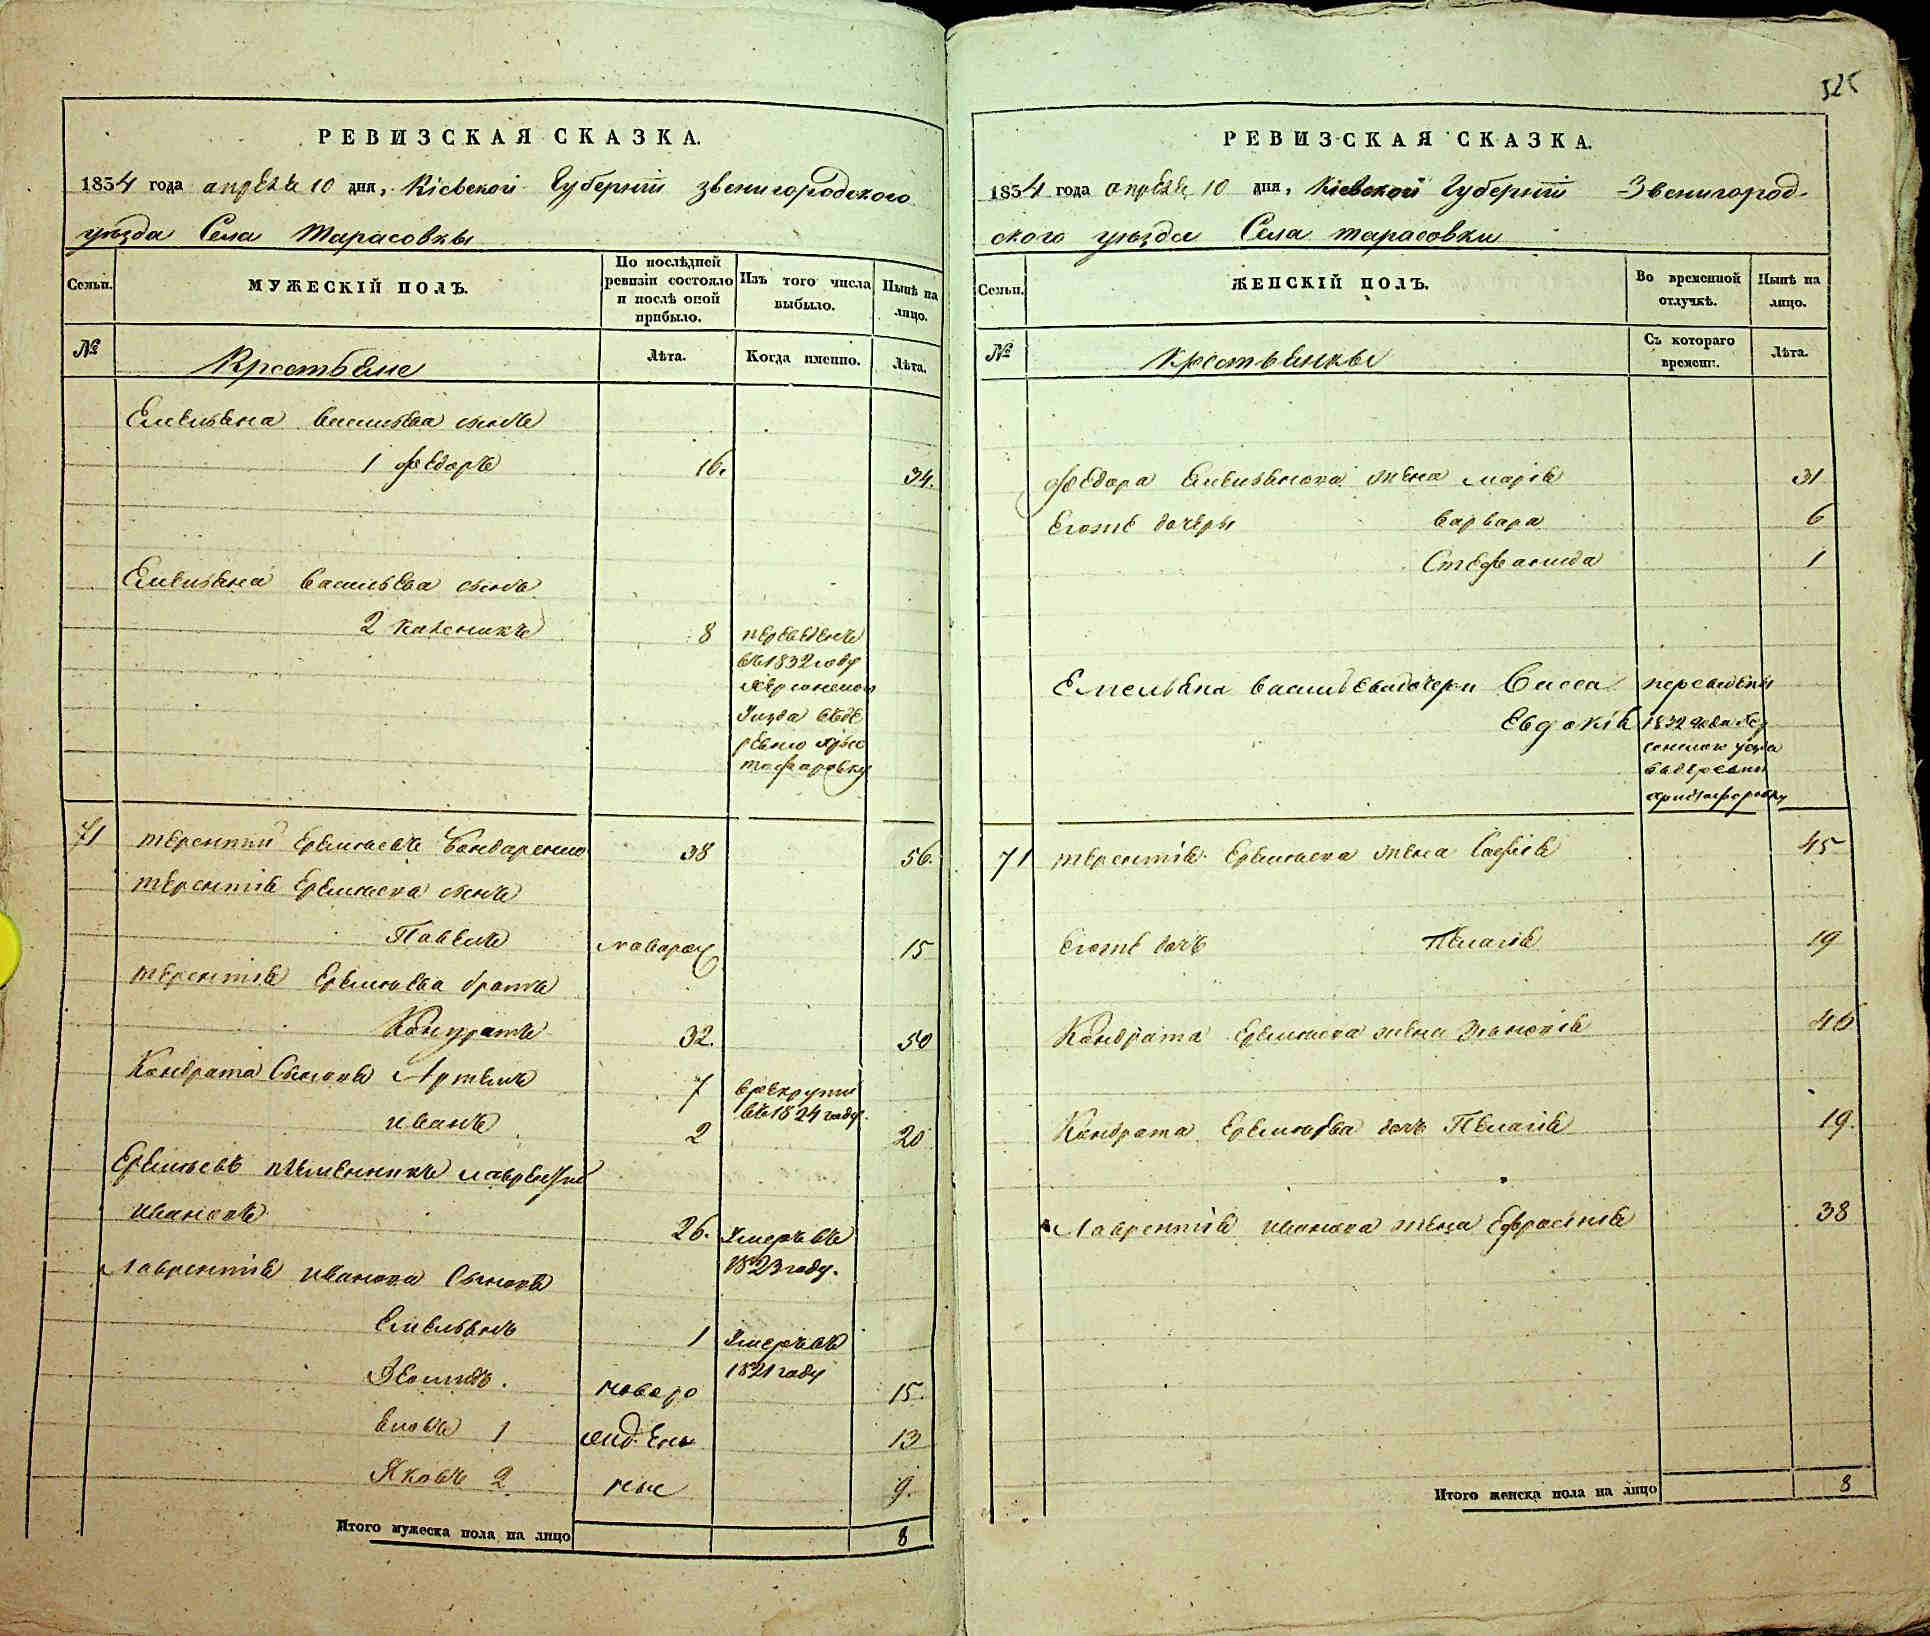 525
РЕВИЗСКАЯ СКАЗКА.
1834 года апрѣля 10 дня, Кіевской Губерніи звенигородского
уѣзда Села Тарасовки
Семьи.
МУЖЕСКІЙ ПОЛЪ.
По послѣдней
ревизіи состояло
и послѣ оной
прибыло.
Изъ того числа
выбыло.
Нынѣ на
лицо.
№
Крестьяне
Лѣта.
Когда именно.
Лѣта.
Емельяна Васильева сынъ
1 Федоръ 16. 34.
Емельяна Васильева сынъ
2 каленикъ 8 переведенъ
въ 1832 году
Херсонского
Уезда въ де
ревню Хрис
тофаровку
71 терентий Еремеевъ Бондаренко 38 56.
терентія Еремеева сынъ
Павелъ новорож 15
терентія Еремеева братъ
Кондратъ 32. 50
Кондрата Сыновя Артемъ 7 в рекруты
въ 1824 году.
иванъ 2 20
Еремеевъ племенникъ лаврентий
ивановъ 26. Умеръ въ
1823 году.
лаврентія иванова Сыновя
Емельянъ 1 Умеръ въ
1821 году
новоро 15.
Яковъ 1 жденъ 13
Яковъ 2 ные 9.
Итого мужеска пола на лицо 8
РЕВИЗСКАЯ СКАЗКА.
1834 года апрѣля 10 дня, Кіевской Губерніи Звенигород-
ского уѣзда Села тарасовки
Семьи.
ЖЕНСКІЙ ПОЛЪ.
Во временной
отлучкѣ.
Нынѣ на
лицо.
№
крестьянки
Съ котораго
времени.
Лѣта.
Федора Емельянова жена марія 31
Егоже дочери варвара 6
Стефанида 1
Емельяна васильева дочери Васса переведены
Евдокія 1832 года Хер
сонского уезда
в деревню
христофоровку
71 терентія Еремеева жена Софія 45
Егоже дочь Пелагія 19
Кондрата Еремеева жена 46
Кондрата Еремеева дочь Пелагія 19.
Лаврентія иванова жена Ефросинія 38
Итого женска пола на лицо 8